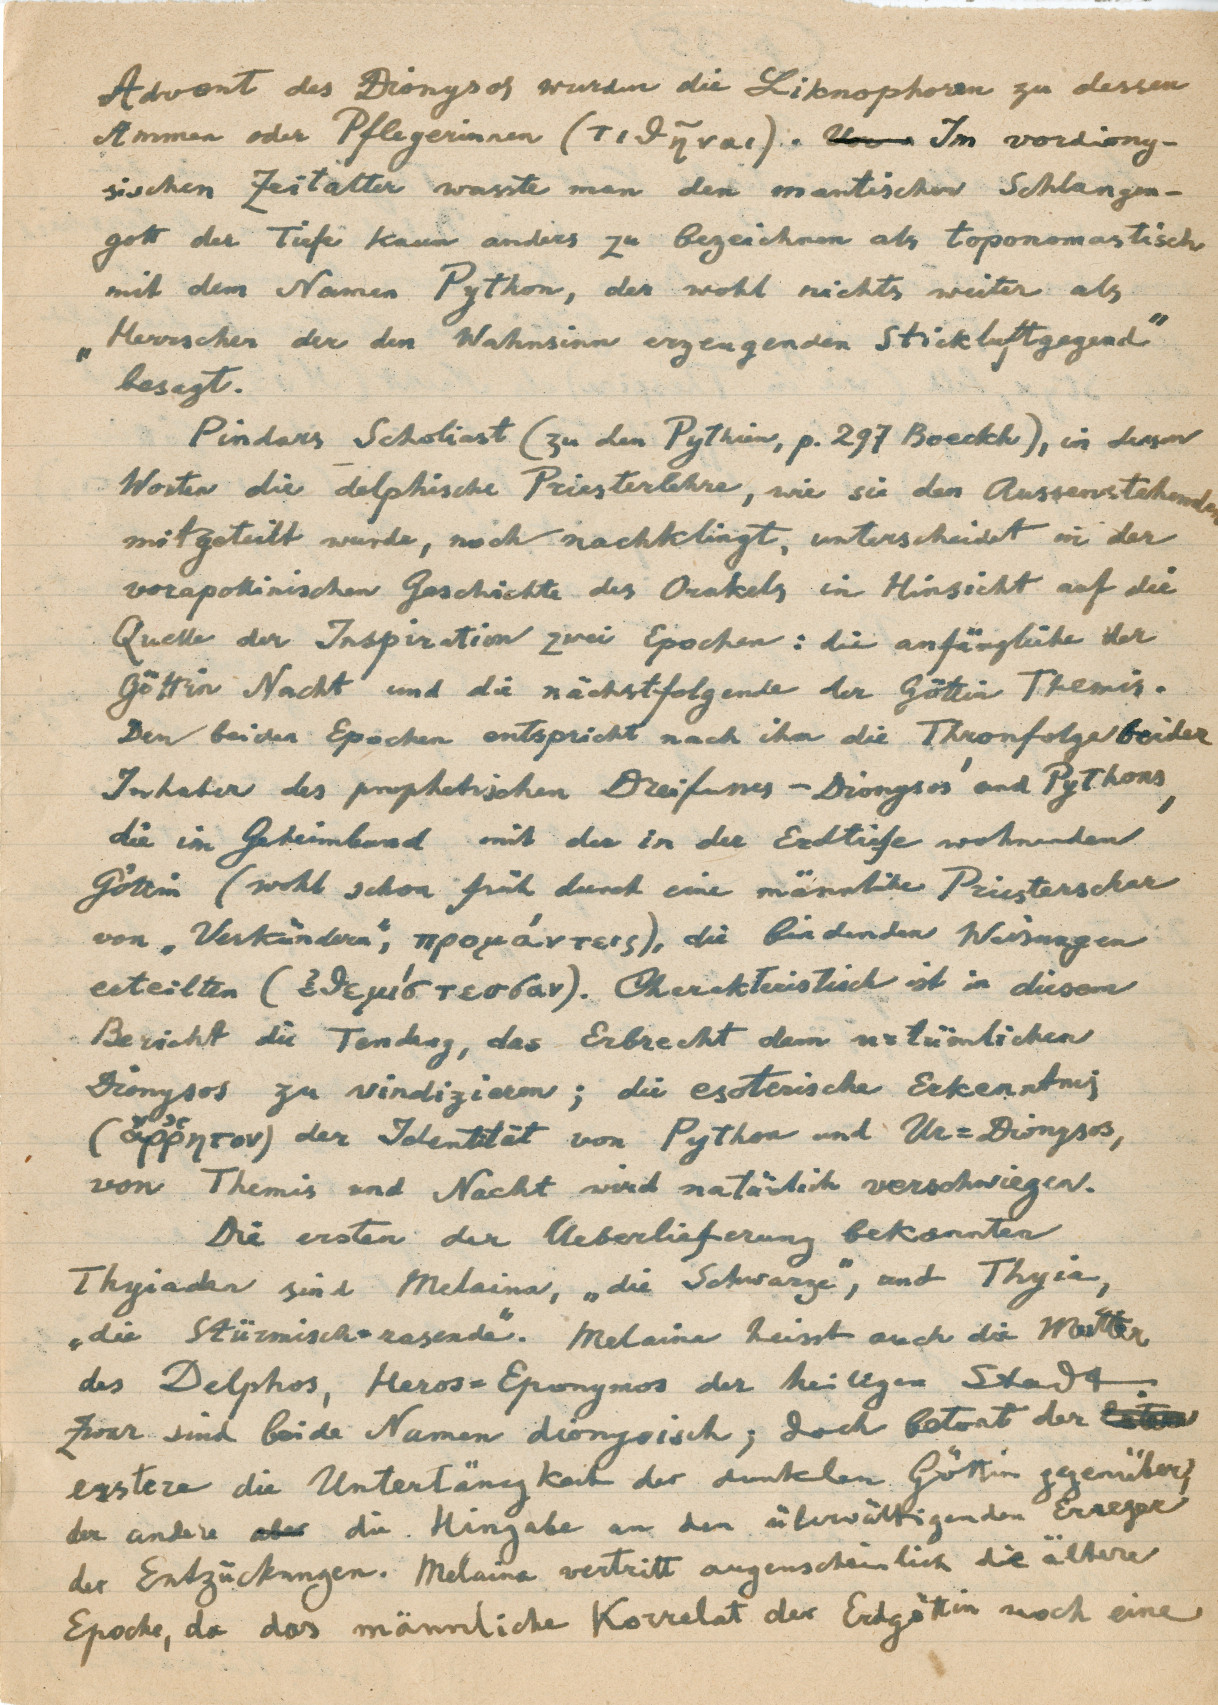 Advent des Dionysos wurden die Liknophoren zu dessen
Ammen oder Pflegerinnen (τιθῆναι). Im vordiony-
sischen Zeitalter wusste man den mantischen Schlangen-
gott der Tiefe kaum anders zu bezeichnen als toponomastisch
mit dem Namen Python, der wohl nichts weiter als
„Herrscher der den Wahnsinn erzeugenden Stickluftgegend”
besagt.
Pindars Scholiast (zu den Pythien, p. 297 Boeckh), in dessen
Worten die delphische Priesterlehre, wie sie den Aussenstehenden
mitgeteilt wurde, noch nachklingt, unterscheidet in der
vorapollinischen Geschichte des Orakels in Hinsicht auf die
Quelle der Inspiration zwei Epochen: die anfängliche der
Göttin Nacht und die nächstfolgende der Göttin Themis.
Den beiden Epochen entspricht nach ihm die Thronfolge beider
Inhaber des prophetischen Dreifusses – Dionysos' und Pythons,
die im Geheimbund mit der in der Erdtiefe wohnenden
Göttin (wohl schon früh durch eine männliche Priesterschar
von „Verkündern“, προμάντεις), die bindenden Weisungen
erteilten (ἐθεμίστεσσαν). Charakteristisch ist in diesem
Bericht die Tendenz, das Erbrecht dem urtümlichen
Dionysos zu vindizieren; die esoterische Erkenntnis
(ἄῤῥητον) der Identität von Python und Ur=Dionysos,
von Themis und Nacht wird natürlich verschwiegen.
Die ersten der Ueberlieferung bekannten
Thyiaden sind Melaina, „die Schwarze“, und Thyia,
„die Stürmisch=rasende“. Melaina heisst auch die Mutter
des Delphos, Heros=Eponymos der heiligen Stadt
Zwar sind beide Namen dionysisch; doch betont der
erstere die Untertänigkeit der dunklen Göttin gegenüber,
der andere die Hingabe an den überwältigenden Erreger
der Entzückungen. Melaina vertritt augenscheinlich die ältere
Epoche, da das männliche Korrelat der Erdgöttin noch eine